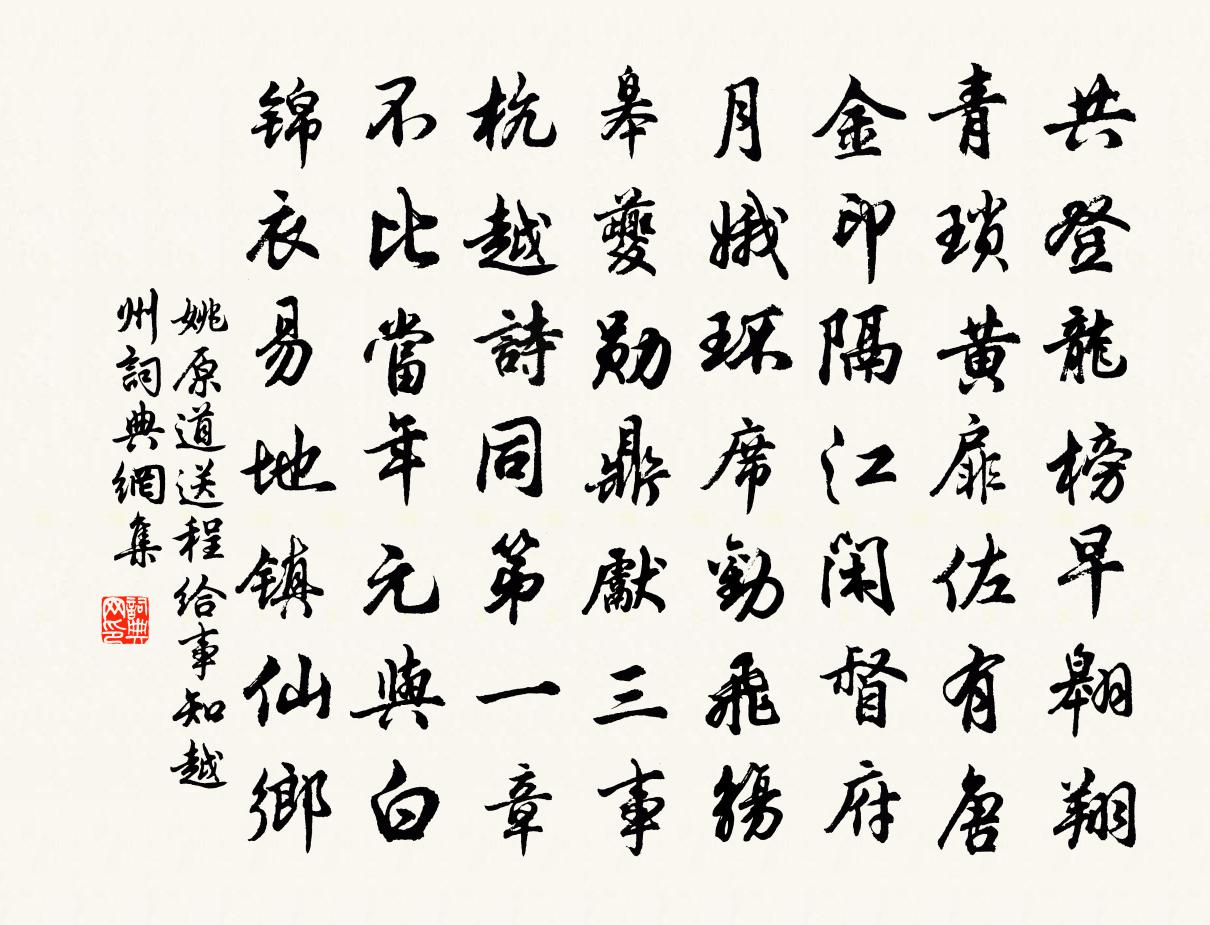 共登龍榜早翱翔
青瑣黃扉佐有唐
金印隔江閑督府
月娥環席勸飛觴
皋夔勛鼎獻三事
杭越詩同第一章
不比當年元與白
錦衣易地鎮仙鄉
姚原道送程給事知越
州詞典網集
詞典
网印